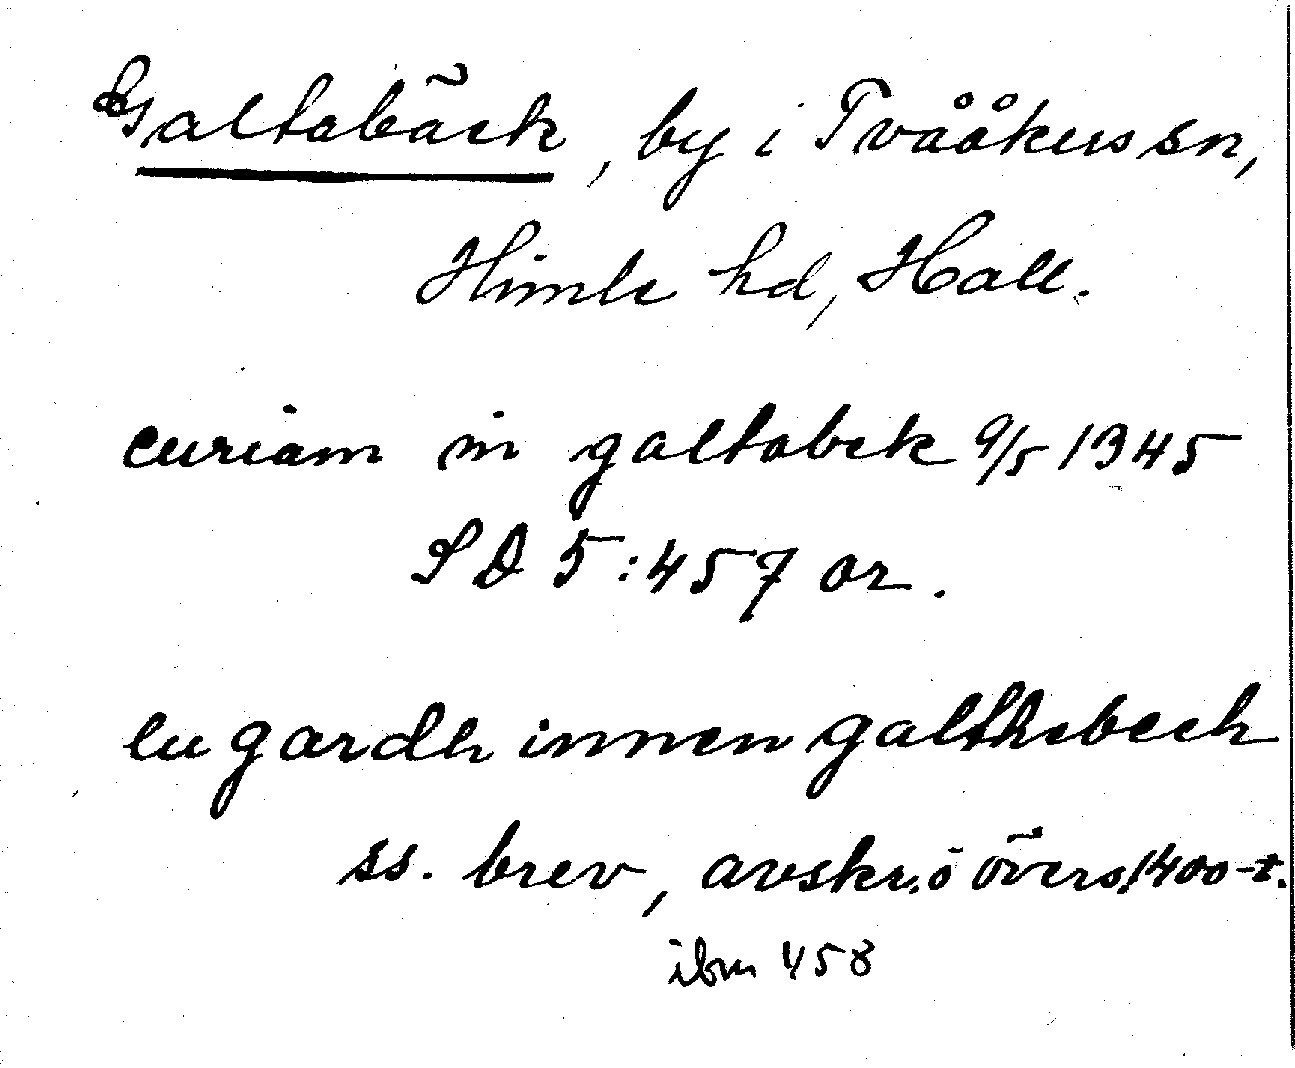 Galtabäck, by i Tvååkers sn,
Himle hd, Hall.
curiam in galtabek 9/5 1345
SD 5:457 or.
en gardh innen galthebech
ss. brev, avskr. ö övers. 1400-t.
ibm 458